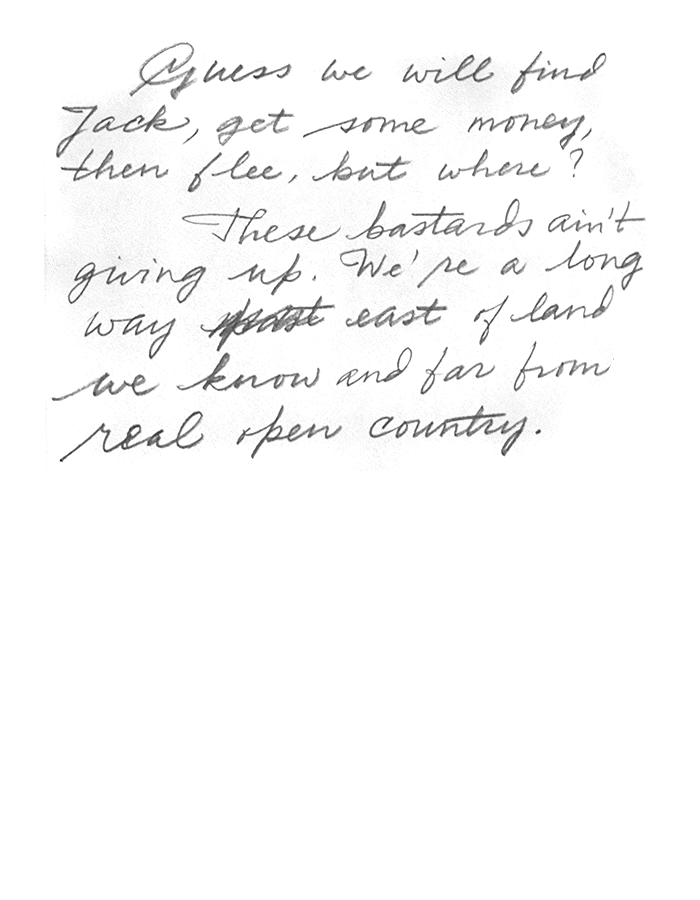 Guess we will find
Jack, get some money,
then flee, but where?
These bastards ain't
giving up. We're a long
way east of land
we know and far from
real open country.